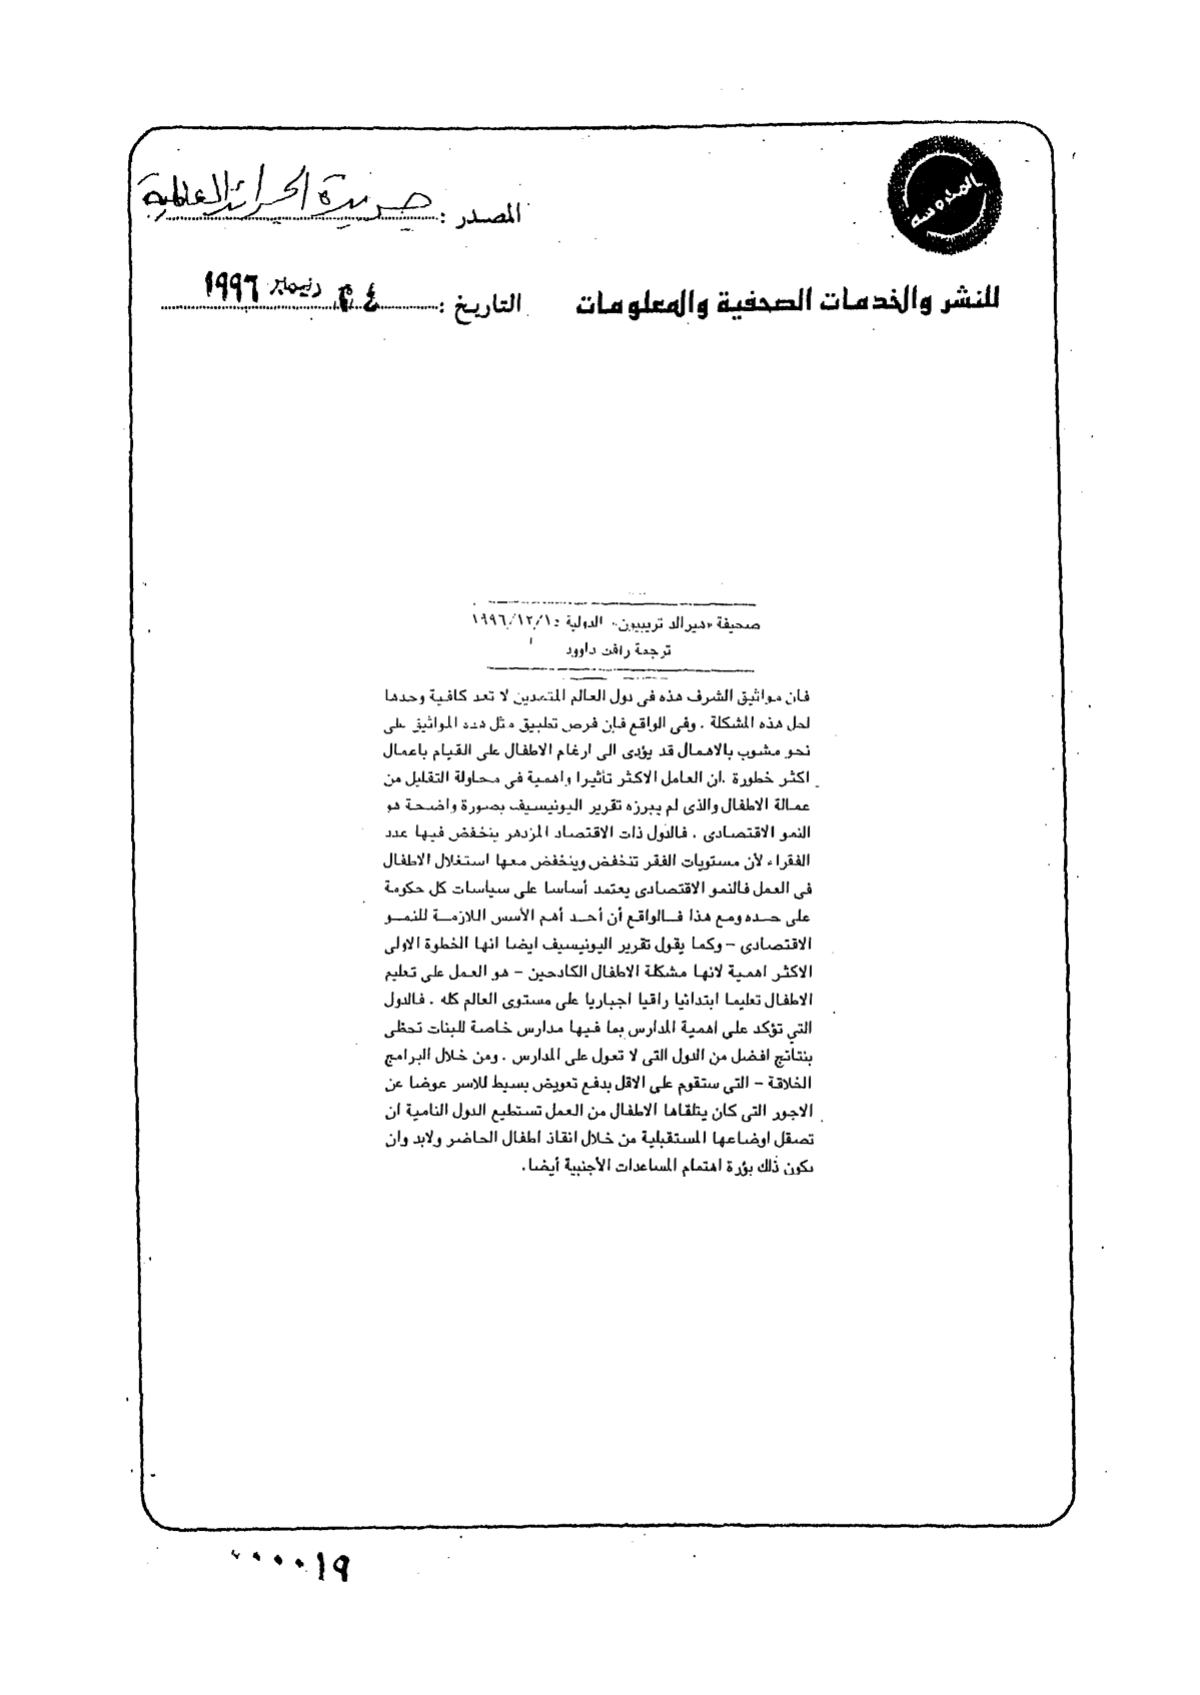 المحروسة
المصدر : جريدة الجرائد العالمية
للنشر والخدمات الصحفية والمعلومات
التاريخ : ٢٤ ديسمبر ١٩٩٦
صحيفة «هيرالد تريبيون» الدولية ١٩٩٦/١٢/١٥
ترجمة رافت داوود
فان مواثيق الشرف هذه فى دول العالم المتمدين لا تعد كافية وحدها
لحل هذه المشكلة . وفى الواقع فإن فرص تطبيق مثل هذه المواثيق على
نحو مشوب بالاهمال قد يؤدى الى ارغام الاطفال على القيام باعمال
اكثر خطورة .ان العامل الاكثر تأثيرا واهمية فى محاولة التقليل من
عمالة الاطفال والذى لم يبرزه تقرير اليونيسيف بصورة واضحة هو
النمو الاقتصادى . فالدول ذات الاقتصاد المزدهر ينخفض فيها عدد
الفقراء لأن مستويات الفقر تنخفض وينخفض معها استغلال الاطفال
فى العمل فالنمو الاقتصادى يعتمد أساسا على سياسات كل حكومة
على حده ومع هذا فالواقع أن أحد أهم الأسس اللازمة للنمو
الاقتصادى – وكما يقول تقرير اليونيسيف ايضا انها الخطوة الاولى
الاكثر اهمية لانها مشكلة الاطفال الكادحين – هو العمل على تعليم
الاطفال تعليما ابتدائيا راقيا اجباريا على مستوى العالم كله . فالدول
التي تؤكد على اهمية المدارس بما فيها مدارس خاصة للبنات تحظى
بنتائج افضل من الدول التى لا تعول على المدارس . ومن خلال البرامج
الخلاقة – التى ستقوم على الاقل بدفع تعويض بسيط للاسر عوضا عن
الاجور التى كان يتلقاها الاطفال من العمل تستطيع الدول النامية ان
تصقل اوضاعها المستقبلية من خلال انقاذ اطفال الحاضر ولابد وان
يكون ذلك بؤرة اهتمام المساعدات الأجنبية أيضا.
٠٠٠٠١٩